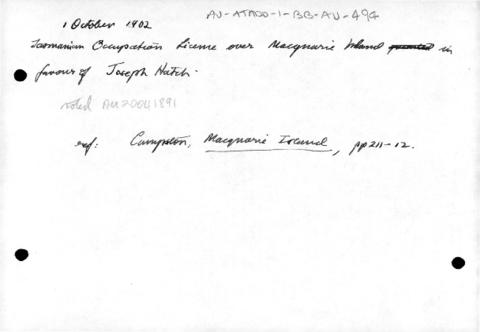 AU-ATADD-1-BB-AU-494
1 October 1902
Tasmanian Occupation License over Macquarie Island granted in
favour of Joseph Hatch.
noted AU20041891
ref: Cumpston, Macquarie Island, pp 211-12.